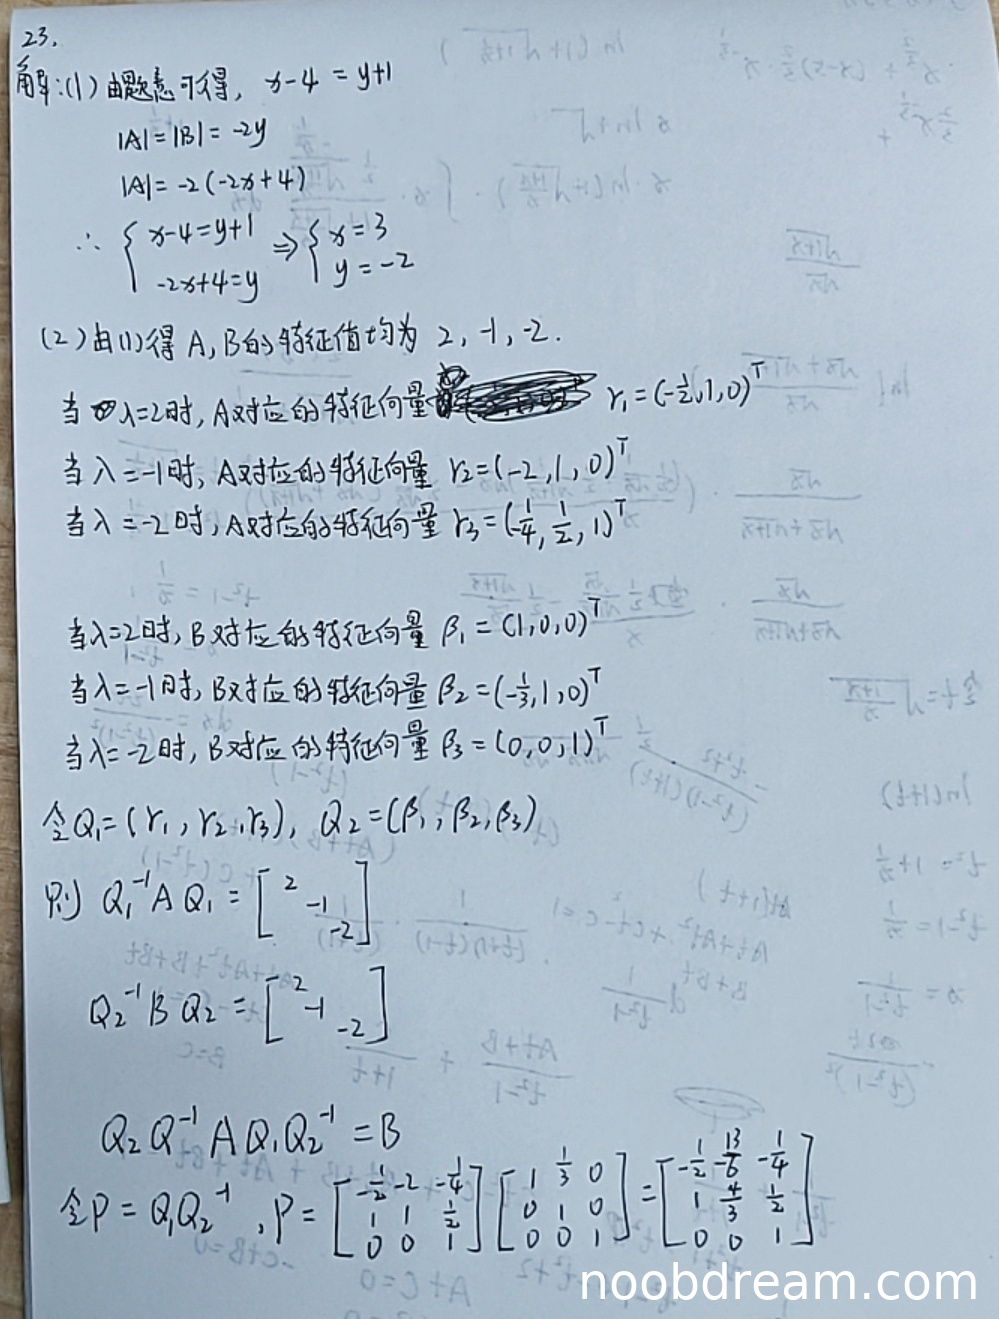 23.
解:(1)由题意可得, x-4 = y+1
|A|=|B|= -2y
|A|= -2(-2x+4)
∴ { x-4=y+1 ⇒ { x=3
-2x+4=y y=-2
(2)由(1)得 A,B的特征值均为 2, -1, -2.
当 λ=2时, A对应的特征向量 r₁=(-1/2,1,0)ᵀ
当λ=-1时, A对应的特征向量 r₂=(-2,1,0)ᵀ
当λ=-2时, A对应的特征向量 r₃=(-1/4, 1/2, 1)ᵀ
当λ=2时, B对应的特征向量 β₁=(1,0,0)ᵀ
当λ=-1时, B对应的特征向量 β₂=(-1/3,1,0)ᵀ
当λ=-2时, B对应的特征向量 β₃=(0,0,1)ᵀ
令Q₁=(r₁,r₂,r₃), Q₂=(β₁,β₂,β₃)
则 Q₁⁻¹AQ₁ = [2 -1 -2]
Q₂⁻¹BQ₂ = [2 -1 -2]
Q₂Q⁻¹AQ₁Q₂⁻¹=B
令P=Q₁Q₂⁻¹, P= [-1/2 -2 -1/4; 1 1 1/2; 0 0 1] [1 1/3 0; 0 1 0; 0 0 1] = [-1/2 -13/6 -1/4; 1 4/3 1/2; 0 0 1]
noobdream.com